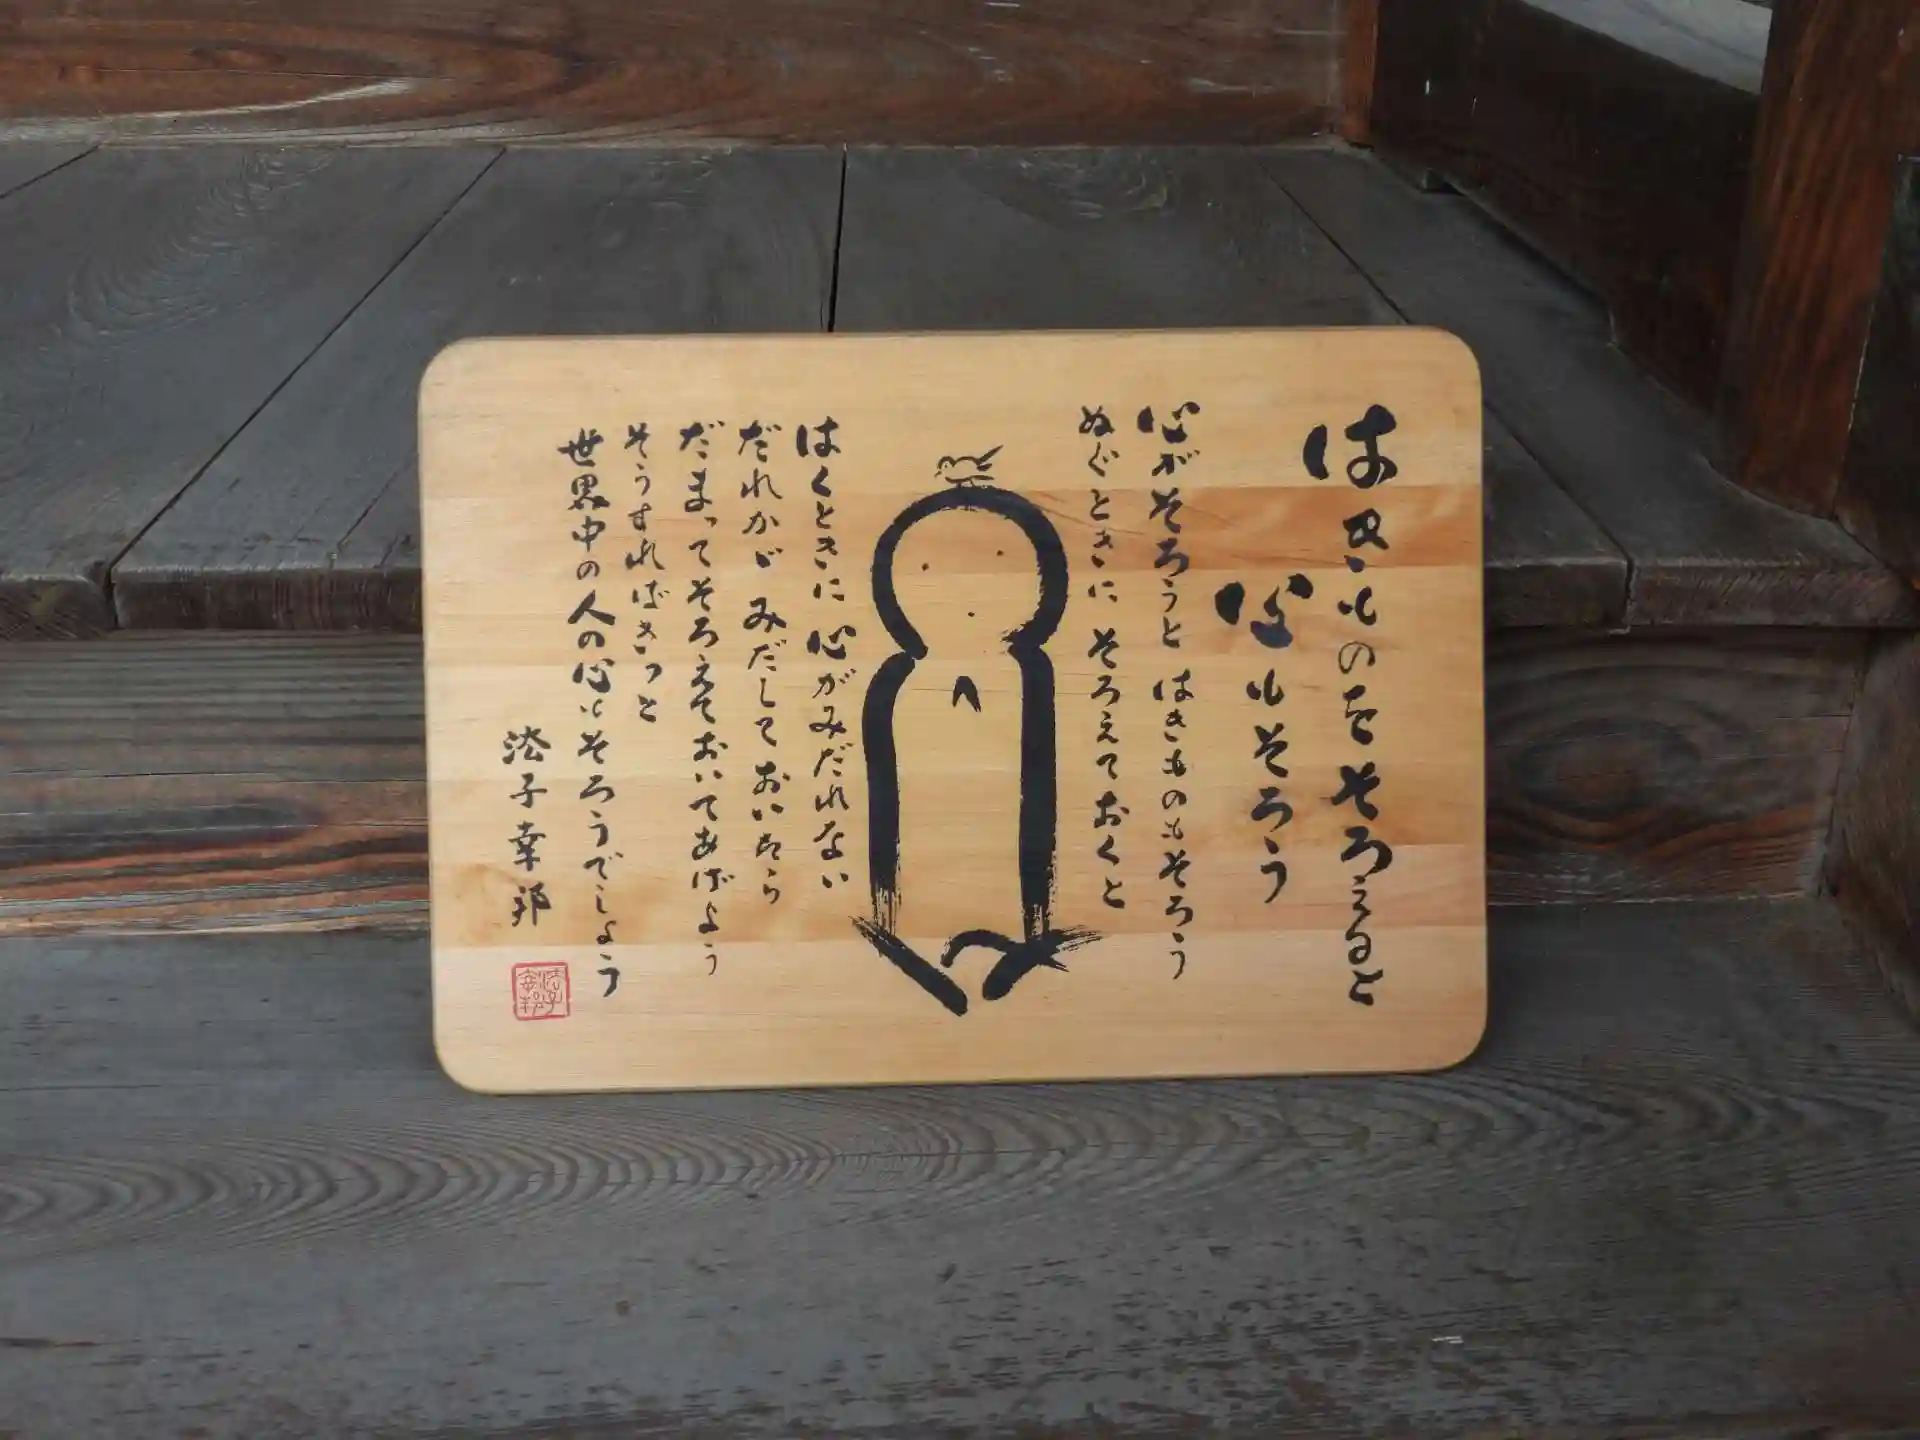 はきものをそろえると
心もそろう
心がそろうと はきものもそろう
ぬぐときに そろえておくと
はくときに 心がみだれない
だれかが みだしておいたら
だまってそろえておいてあげよう
そうすればきっと
世界中の人の心もそろうでしょう
法子幸邦